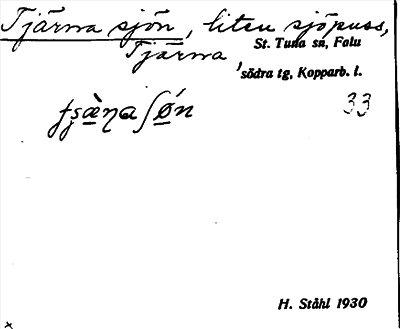 Tjärna sjön, liten sjöpuss,
Tjärna St. Tuna sn, Falu
södra tg, Kopparb. l.
33
H. Ståhl 1930